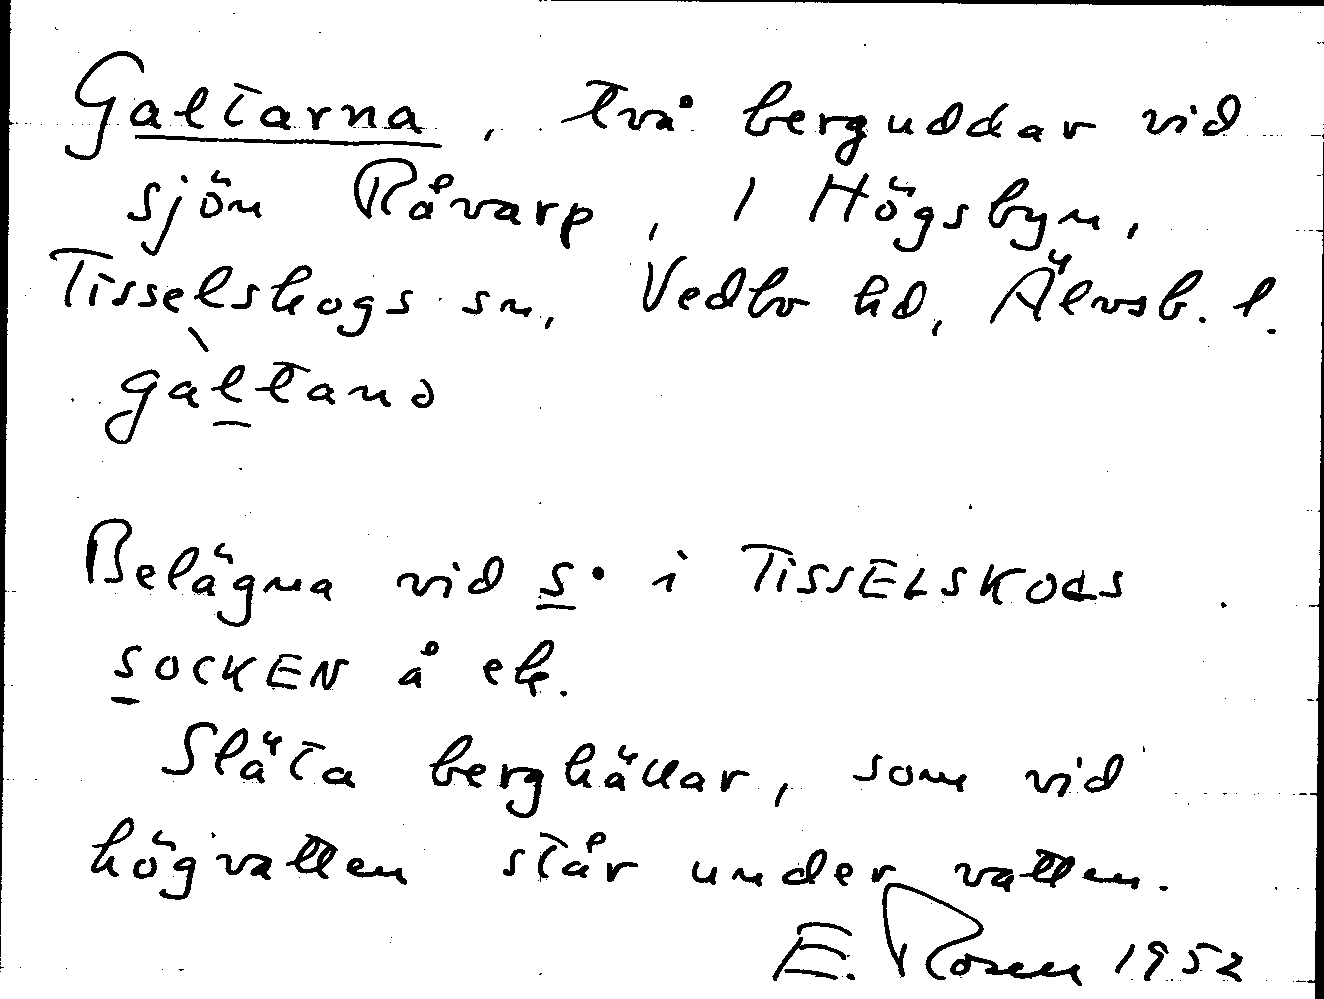 Galtarna, två berguddar vid
sjön Råvarp, i Högsbyn,
Tisselskogs sn, Vedbo hd, Älvsb. l.
gàltanɔ
Belägna vid s• i TISSELSKOGS
SOCKEN å ek.
Släta berghällar, som vid
högvatten står under vatten.
E. Rosell 1952